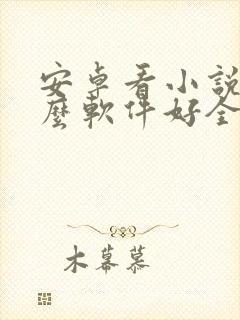 安卓看小說
麼軟件好全
木幕慕